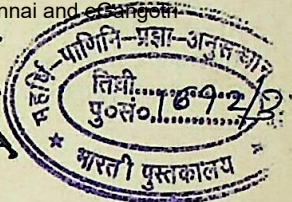 nnai and eGangotri
महर्षि-पाणिनि-प्रज्ञा-अनुसन्धान
तिथी..............
पु०सं०.1692/B
★ भारती पुस्तकालय ★